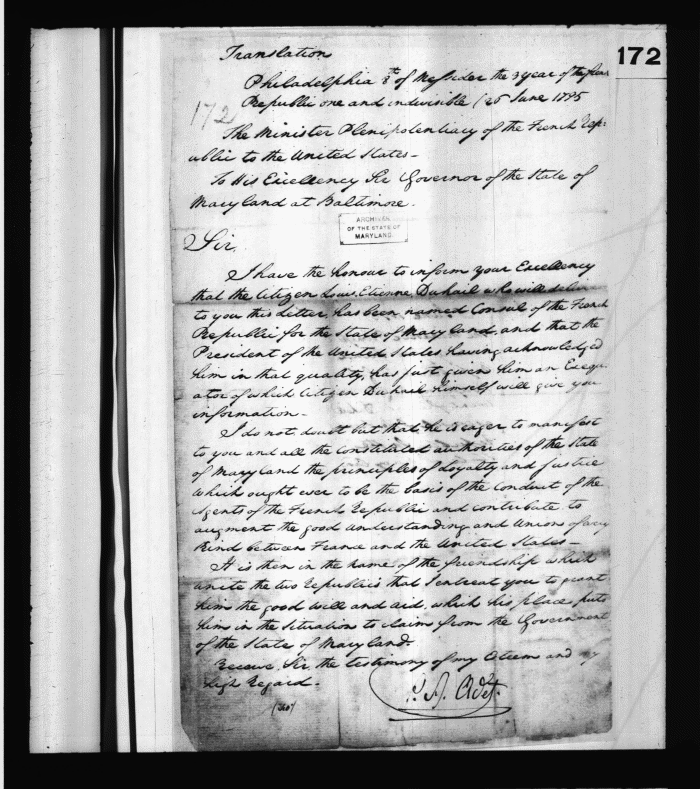 172
Translation
Philadelphia 8th of Messidor the 3 year of the
172
Republic one and indivisible (26 June 1795
The Minister Plenipotentiary of the French Rep:
ublic to the United States -
To His Excellency Sir Governor of the State of
Maryland at Baltimore.
ARCHIVES
OF THE STATE OF
MARYLAND.
Sir,
I have the honour to inform your Excellency
that the Citizen Louis Etienne Duhail who will
to you this Letter, has been named Consul of the French
Republic for the State of Maryland, and that the
President of the United States having acknowledged
him in that quality, has just given him an Exequ-
ator of which Citizen Duhail himself will give you
information -
I do not doubt but that he is eager to manifest
to you and all the Constituted authorities of the State
of Maryland the principles of Loyalty and justice
which ought ever to be the basis of the Conduct of the
Agents of the French Republic and contribute to
augment the good Understanding and Unions of any
kind between France and the United States -
It is then in the name of the friendship which
unite the two Republics that I entreat you to grant
him the good will and aid, which his place puts
him in the Situation to claim from the Government
of the State of Maryland.
Receive Sir the testimony of my Esteem and my
high Regard -
P. A. Adet.